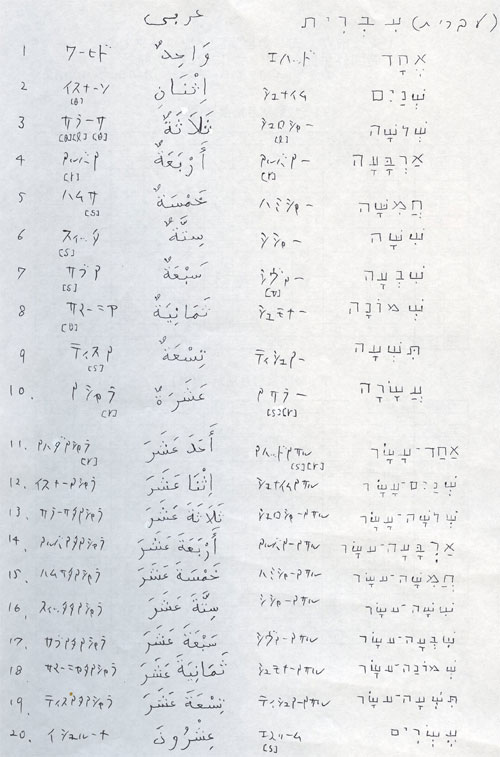 عربى עִבְרִית (עברית)
1 ワーヒド وَاحِدٌ エハッド אֶחָד
2 イスナーン [θ] اِثْنَانِ シュナイム שְׁנַיִם
3 サラーサ [θ][l][θ] ثَلَاثَةٌ シュロシャー [l] שְׁלֹשָׁה
4 アルバア [r] أَرْبَعَةٌ アルバアー [r] אַרְבָּעָה
5 ハムサ [s] خَمْسَةٌ ハミシャー חֲמִשָּׁה
6 スィッタ [s] سِتَّةٌ シシャー שִׁשָּׁה
7 サブア [s] سَبْعَةٌ シヴアー [v] שִׁבְעָה
8 サマーニヤ [θ] ثَمَانِيَةٌ シュモナー שְׁמוֹנָה
9 ティスア [s] تِسْعَةٌ ティシュアー תִּשְׁעָה
10. アシャラ [r] عَشَرَةٌ アサラー [s][r] עֲשָׂרָה
11. アハダアシャラ [r] أَحَدَ عَشَرَ アハッドアサル [s][r] אַחַד־עָשָׂר
12. イスナーアシャラ اِثْنَا عَشَرَ シュナイムアサル שְׁנַיִם־עָשָׂר
13. サラーサタアシャラ ثَلَاثَةَ عَشَرَ シュロシャーアサル שְׁלֹשָׁה־עָשָׂר
14. アルバアタアシャラ أَرْبَعَةَ عَشَرَ アルバアーアサル אַרְבָּעָה־עָשָׂר
15. ハムサタアシャラ خَمْسَةَ عَشَرَ ハミシャーアサル חֲמִשָּׁה־עָשָׂר
16. スィッタタアシャラ سِتَّةَ عَشَرَ シシャーアサル שִׁשָּׁה־עָשָׂר
17. サブアタアシャラ سَبْعَةَ عَشَرَ シヴアーアサル שִׁבְעָה־עָשָׂר
18 サマーニヤタアシャラ ثَمَانِيَةَ عَشَرَ シュモナーアサル שְׁמוֹנָה־עָשָׂר
19. ティスアタアシャラ تِسْعَةَ عَشَرَ ティシュアーアサル תִּשְׁעָה־עָשָׂר
20. イシュルーナ عِشْرُونَ エスリーム [s] עֶשְׂרִים